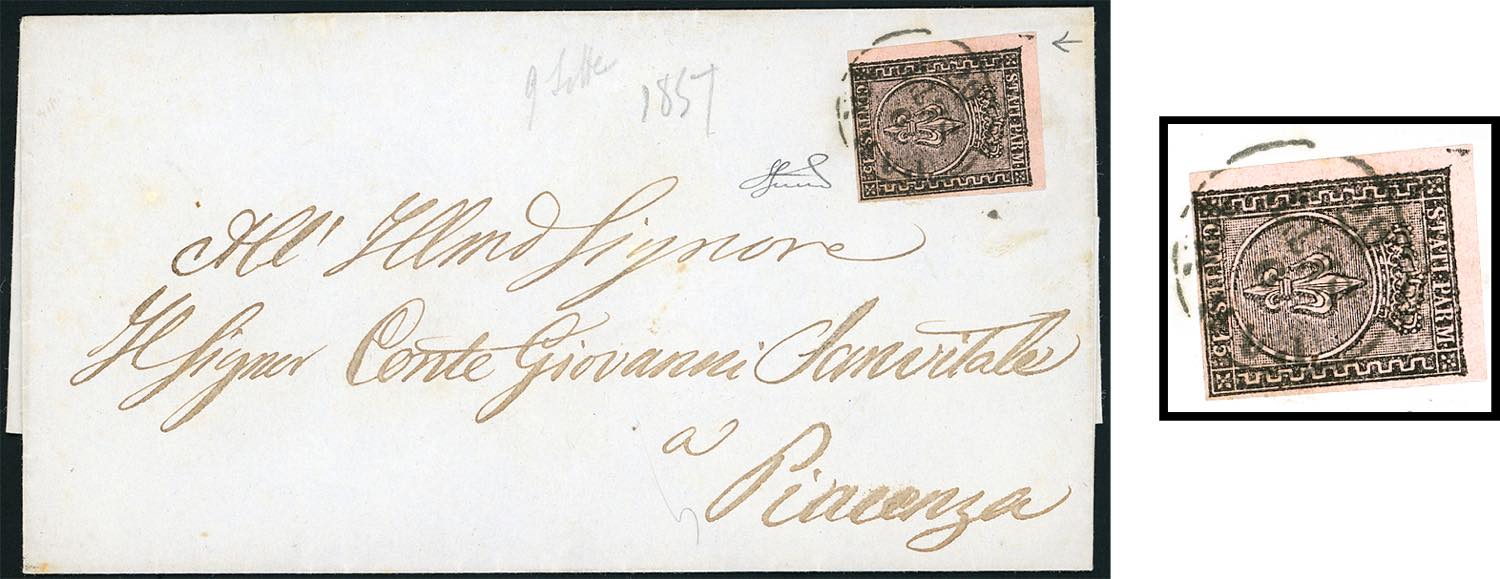 9 Sette
1857
STATI PARM:
CENTES. 15
All' Illmo Signore
Il Signor Conte Giovanni Sanvitale
a
Piacenza
STATI PARM:
CENTES. 15